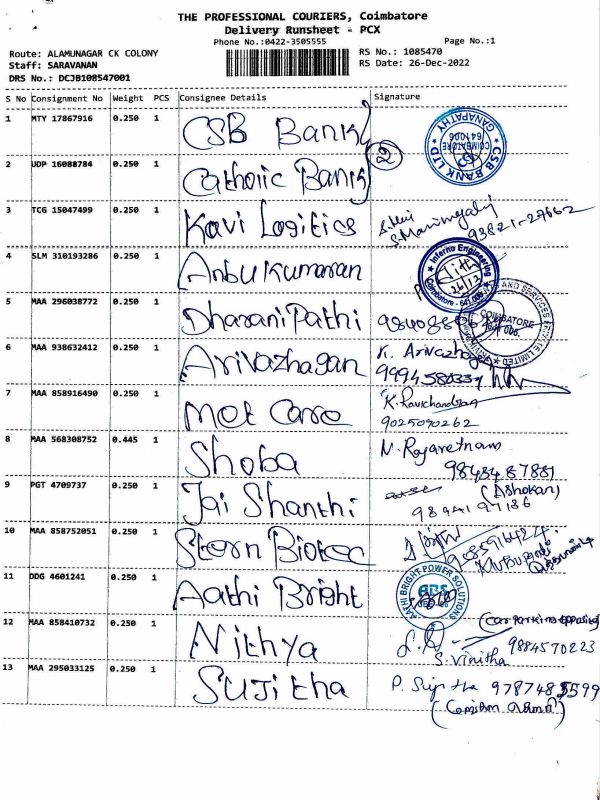 THE PROFESSIONAL COURIERS, Coimbatore
Delivery Runsheet - PCX
Phone No.:0422-3505555
Page No.:1
Route: ALAMUNAGAR CK COLONY
RS No.: 1085470
Staff: SARAVANAN
RS Date: 26-Dec-2022
DRS No.: DCJB108547001
S No Consignment No Weight PCS Consignee Details Signature
1 MTY 17867916 0.250 1 CSB Bank
CSB BANK LTD GANAPATHY COIMBATORE 641006
2
2 UDP 16088784 0.250 1 Catholic Bank
3 TCG 15047499 0.250 1 Kavi Logitics
93821-27662
4 SLM 310193286 0.250 1 Anbukumaran
Inferno Engineering Coimbatore - 641 006
5 MAA 296038772 0.250 1 DharaniPathi
COIMBATORE 641 006.
6 MAA 938632412 0.250 1 Arivazhagan K. Arivazhagan
7 MAA 858916490 0.250 1 Met Care K. Ravichandran
9025090262
8 MAA 568308752 0.445 1 Shoba N. Rajaretnam
9 PGT 4709737 0.250 1 Jai Shanthi (Ashokan)
98941 97186
10 MAA 858752051 0.250 1 Stern Biotec
11 DDG 4601241 0.250 1 Aathi Bright
AATHI BRIGHT POWER SOLUTIONS ABPS
12 MAA 858410732 0.250 1 Nithya (car parking opposing)
9884570223
S. Vinitha
13 MAA 295033125 0.250 1 Sujitha P. Sujitha 9787485599